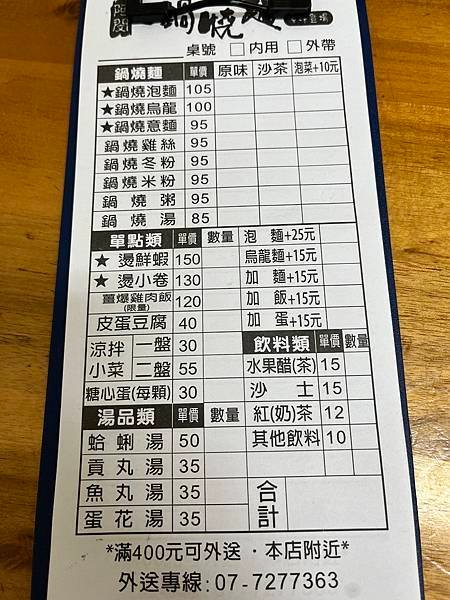 鍋燒麵
桌號 □內用 □外帶
鍋燒麵 單價 原味 沙茶 泡菜+10元
★鍋燒泡麵 105
★鍋燒烏龍 100
★鍋燒意麵 95
鍋燒雞絲 95
鍋燒冬粉 95
鍋燒米粉 95
鍋燒粥 95
鍋燒湯 85
單點類 單價 數量 泡麵+25元
★燙鮮蝦 150 烏龍麵+15元
★燙小卷 130 加麵+15元
薑爆雞肉飯(限量) 120 加飯+15元
皮蛋豆腐 40 加蛋+15元
涼拌小菜 一盤 30 飲料類 單價 數量
二盤 55 水果醋(茶) 15
糖心蛋(每顆) 30 沙士 15
湯品類 單價 數量 紅(奶)茶 12
蛤蜊湯 50 其他飲料 10
貢丸湯 35
魚丸湯 35 合計
蛋花湯 35
*滿400元可外送．本店附近*
外送專線: 07-7277363